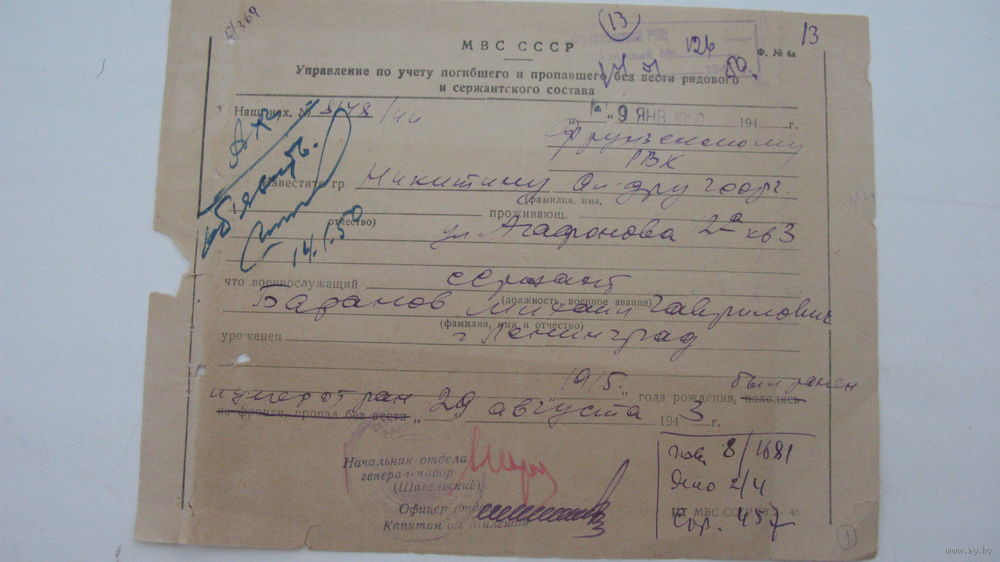 13
13
МВС СССР
126
Ф. № 4а
50.
Управление по учету погибшего и пропавшего без вести рядового
и сержантского состава
Наш исх. №
9 ЯНВ 1950 194 г.
Фрунзенскому
РВК
Известите гр. Никитину
(фамилия, имя,
отчество) проживающ.
ул Агафонова 2а кв 3
14.1.50
что военнослужащий сержант
(должность, военное звание)
Баранов Михаил Гаврилович
(фамилия, имя и отчество)
уроженец г Ленинград
1915. года рождения, находясь был ранен
на фронте, пропал без вести умер от ран „29" августа 1943 г.
Начальник отдела
генерал-майор
(Шавельский)
Офицер отдела
Капитан
8/1681
Дело 2/4
Стр. 457
1
www.ay.by